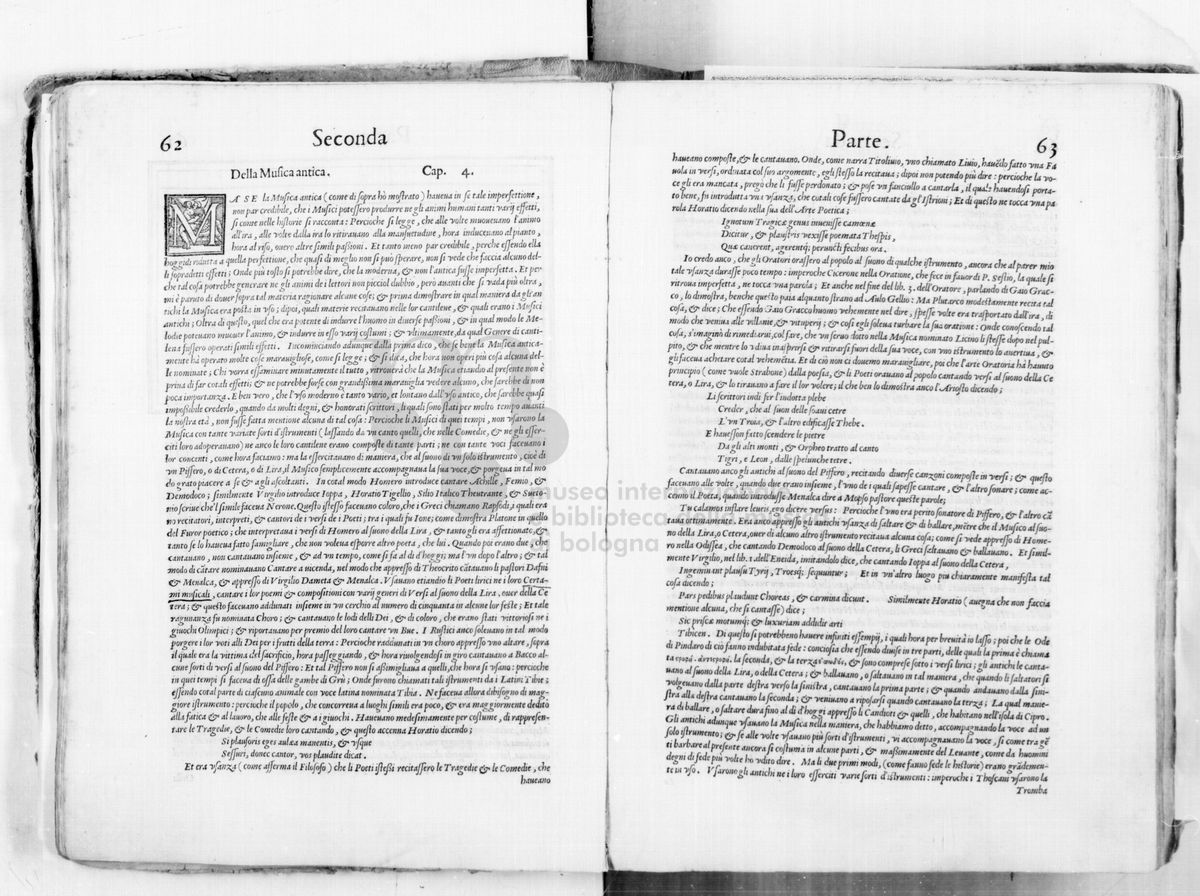 62 Seconda
Della Musica antica. Cap. 4.
MA SE la Musica antica (come di sopra hò mostrato) haueua in se tale imperfettione,
non par credibile, che i Musici potessero produrre ne gli animi humani tanti varij effetti,
si come nelle historie si racconta: Percioche si legge, che alle volte muoueuano l'animo
all'ira, alle volte dalla ira lo ritirauano alla mansuetudine, hora induceuano al pianto,
hora al riso, ouero altre simili passioni. Et tanto meno par credibile, perche essendo ella
hoggidi ridutta a quella perfettione, che quasi di meglio non si può sperare, non si vede che faccia alcuno del-
li sopradetti effetti; Onde più tosto si potrebbe dire, che la moderna, & non l'antica fusse imperfetta. Et per
che tal cosa potrebbe generare ne gli animi de i lettori non picciol dubbio, però auanti che si vada più oltra,
mi è paruto di douer sopra tal materia ragionare alcune cose; & prima dimostrare in qual maniera da gli an
tichi la Musica era posta in vso; dipoi, quali materie recitauano nelle lor cantilene, & quali erano i Musici
antichi; Oltra di questo, quel che era potente di indurre l'huomo in diuerse passioni, & in qual modo le Me-
lodie poteuano muouer l'animo, & indurre in esso varij costumi; & vltimamente, da qual Genere di canti-
lena fussero operati simili effetti. Incominciando adunque dalla prima dico, che se bene la Musica antica-
mente hà operato molte cose marauigliose, come si legge; & si dica, che hora non operi più cosa alcuna del-
le nominate; Chi vorrà essaminare minutamente il tutto, ritrouerà che la Musica etiandio al presente non è
priua di far cotali effetti; & ne potrebbe forse con grandissima marauiglia vedere alcuno, che sarebbe di non
poca importanza. E ben vero, che l'vso moderno è tanto vario, et lontano dall'vso antico, che sarebbe quasi
impossibile crederlo, quando da molti degni, & honorati scrittori, li quali sono stati per molto tempo auanti
la nostra età, non fusse fatta mentione alcuna di tal cosa: Percioche li Musici di quei tempi, non vsarono la
Musica con tante variate sorti d'istrumenti (lassando da vn canto quelli, che nelle Comedie, & ne gli esser-
citi loro adoperauano) ne anco le loro cantilene erano composte di tante parti; ne con tante voci faceuano i
lor concenti, come hora facciamo: ma la essercitauano di maniera, che al suono di vn solo istrumento, cioè di
vn Piffero, o di Cetera, o di Lira, il Musico semplicemente accompagnaua la sua voce, & porgeua in tal mo
do grato piacere a se & agli ascoltanti. In cotal modo Homero introduce cantare Achille, Femio, &
Demodoco; similmente Virgilio introduce Ioppa, Horatio Tigellio, Silio Italico Theutrante, & Sueto-
nio scriue che'l simile faceua Nerone. Questo istesso faceuano coloro, che i Greci chiamano Rapsodi, i quali era
no recitatori, interpreti, & cantori de i versi de i Poeti; tra i quali fu Ione; come dimostra Platone in quello
del Furor poetico; che interpretaua i versi di Homero al suono della Lira, & tanto gli era affettionato, &
tanto se lo haueua fatto famigliare, che non voleua esporre altro poeta, che lui. Quando poi erano due, che
cantauano, non cantauano insieme, & ad vn tempo, come si fa al dì d'hoggi; ma l'vn dopo l'altro; & tal
modo di cãtare nominauano Cantare a vicenda, nel modo che appresso di Theocrito cãtauano li pastori Dafni
& Menalca, & appresso di Virgilio Dameta & Menalca. Vsauano etiandio li Poeti lirici ne i loro Certa-
mi musicali, cantare i lor poemi & compositioni con varij generi di Versi al suono della Lira, ouer della Ce
tera; & questo faceuano addunati insieme in vn cerchio al numero di cinquanta in alcune lor feste; Et tale
ragunanza fu nominata Choro; & cantauano le lodi delli Dei, & di coloro, che erano stati vittoriosi ne i
giuochi Olimpici; & riportauano per premio del loro cantare vn Bue. I Rustici anco soleuano in tal modo
porgere i lor voti alli Dei per i frutti della terra: Percioche raddunati in vn choro appresso vno altare, sopra
il quale era la vittima del sacrificio, hora passeggiando, & hora riuolgendosi in giro cantauano a Bacco al-
cune sorti di versi al suono del Piffero: Et tal Piffero non si assimigliaua a quelli, che hora si vsano: percioche
in quei tempi si faceua di ossa delle gambe di Grù; Onde furono chiamati tali istrumenti da i Latini Tibie;
essendo cotal parte di ciascuno animale con voce latina nominata Tibia. Ne faceua allora dibisogno di mag-
giore istrumento: percioche il popolo, che concorreua a luoghi simili era poco, & era maggiormente dedito
alla fatica & al lauoro, che alle feste & a i giuochi. Haueuano medesimamente per costume, di rappresen-
tare le Tragedie, & le Comedie loro cantando, & questo accenna Horatio dicendo;
Si plausoris eges aulæa manentis, & vsque
Sessuri, donec cantor, vos plaudite dicat.
Et era vsanza (come afferma il Filosofo) che li Poeti istessi recitassero le Tragedie & le Comedie, che
haueano
Parte. 63
haueano composte, & le cantauano. Onde, come narra Titoliuio, vno chiamato Liuio, hauẽdo fatto vna Fa
uola in versi, ordinata col suo argomento, egli stesso la recitaua; dipoi non potendo più dire: percioche la vo-
ce gli era mancata, pregò che li fusse perdonato; & pose vn fanciullo a cantarla, il quale hauendosi porta-
to bene, fu introdutta vn'vsanza, che cotali cose fussero cantate da gl'Istrioni; Et di questo ne tocca vna pa
rola Horatio dicendo nella sua dell'Arte Poetica;
Ignotum Tragicæ genus inuenisse camœnæ
Dicitur, & plaustris vexisse poemata Thespis,
Quæ canerent, agerentq; peruncti fecibus ora.
Io credo anco, che gli Oratori orassero al popolo al suono di qualche istrumento, ancora che al parer mio
tale vsanza durasse poco tempo: imperoche Cicerone nella Oratione, che fece in fauor di P. Sestio, la quale si
ritroua imperfetta, ne tocca vna parola; Et anche nel fine del lib. 3. dell'Oratore, parlando di Gaio Grac-
co, lo dimostra, benche questo paia alquanto strano ad Aulo Gellio: Ma Plutarco modestamente recita tal
cosa, & dice; Che essendo Gaio Graccho uomo vehemente nel dire, spesse volte era trasportato dall'ira, di
modo che veniua alle villanie, & vituperij; & così egli soleua turbare la sua oratione: Onde conoscendo tal
cosa, s'imaginò di rimediarui, col fare, che vn seruo dotto nella Musica nominato Licino li stesse dopo nel pul-
pito, & che mentre lo vdiua inasprirsi & ritirarsi fuori della sua voce, con vno istrumento lo auertiua, &
gli faceua achetare cotal vehemẽtia. Et di ciò non ci douemo marauigliare, poi che l'arte Oratoria hà hauuto
principio (come vuole Strabone) dalla poesia, & li Poeti orauano al popolo cantando versi al suono della Ce
tera, o Lira, & lo tirauano a fare il lor volere; il che ben lo dimostra anco l'Ariosto dicendo;
Li scrittori indi fer l'indotta plebe
Creder, che al suon delle soaui cetre
L'vn Troia, & l'altro edificasse Thebe.
E hauesson fatto scendere le pietre
Da gli alti monti, & Orpheo tratto al canto
Tigri, e Leon, dalle spelunche tetre.
Cantauano anco gli antichi al suono del Piffero, recitando diuerse canzoni composte in versi; & questo
faceuano alle volte, quando due erano insieme, l'vno de i quali sapesse cantare, & l'altro sonare; come ac-
cenno il Poeta, quando introdusse Menalca dire a Mopso pastore queste parole;
Tu calamos inflare leueis, ego dicere versus: Percioche l'vno era perito sonatore di Piffero, & l'altro cã
taua ottimamente. Era anco appresso gli antichi vsanza di saltare & di ballare, mẽtre che il Musico al suo-
no della Lira, o Cetera, ouer di alcuno altro istrumento recitaua alcuna cosa; come si vede appresso di Home-
ro nella Odissea, che cantando Demodoco al suono della Cetera, li Greci saltauano & ballauano. Et simil-
mente Virgilio, nel lib. 1. dell'Eneida, imitandolo dice, che cantando Ioppa al suono della Cetera,
Ingeminant plausu Tyrij, Troesq; sequuntur; Et in vn'altro luogo piu chiaramente manifesta tal
cosa dicendo;
Pars pedibus plaudunt Choreas, & carmina dicunt. Similmente Horatio (auegna che non faccia
mentione alcuna, che si cantasse) dice;
Sic priscæ motumq; & luxuriam addidit arti
Tibicen. Di questo si potrebbeno hauere infiniti essempij, i quali hora per breuità io lasso; poi che le Ode
di Pindaro di ciò fanno indubitata fede: conciosia che essendo diuise in tre parti, delle quali la prima è chiama
ta στροφὴ. ἀντιστροφὴ. la seconda, & la terza ἐπωδὸς, & sono comprese sotto i versi lirici; gli antichi le canta-
uano al suono della Lira, o della Cetera; & ballauano, o saltauano in tal maniera, che quando li saltatori si
volgeuano dalla parte destra verso la sinistra, cantauano la prima parte; & quando andauano dalla sini-
stra alla destra cantauano la seconda; & veniuano a riposarsi quando cantauano la terza; La qual manie-
ra di ballare, o saltare dura fino al dì d'hoggi appresso li Candioti & quelli, che habitano nell'isola di Cipro.
Gli antichi adunque vsauano la Musica nella maniera, che habbiamo detto, accompagnando la voce ad un
solo istrumento; & se alle volte vsauano più sorti d'istrumenti, vi accompagnauano la voce, si come tra gẽ
ti barbare al presente ancora si costuma in alcune parti, & massimamente del Leuante, come da huomini
degni di fede più volte ho vdito dire. Ma li due primi modi, (come fanno fede le historie) erano grãdemen-
te in vso. Vsarono gli antichi ne i loro esserciti varie sorti d'istrumenti: imperoche i Thoscani vsarono la
Tromba